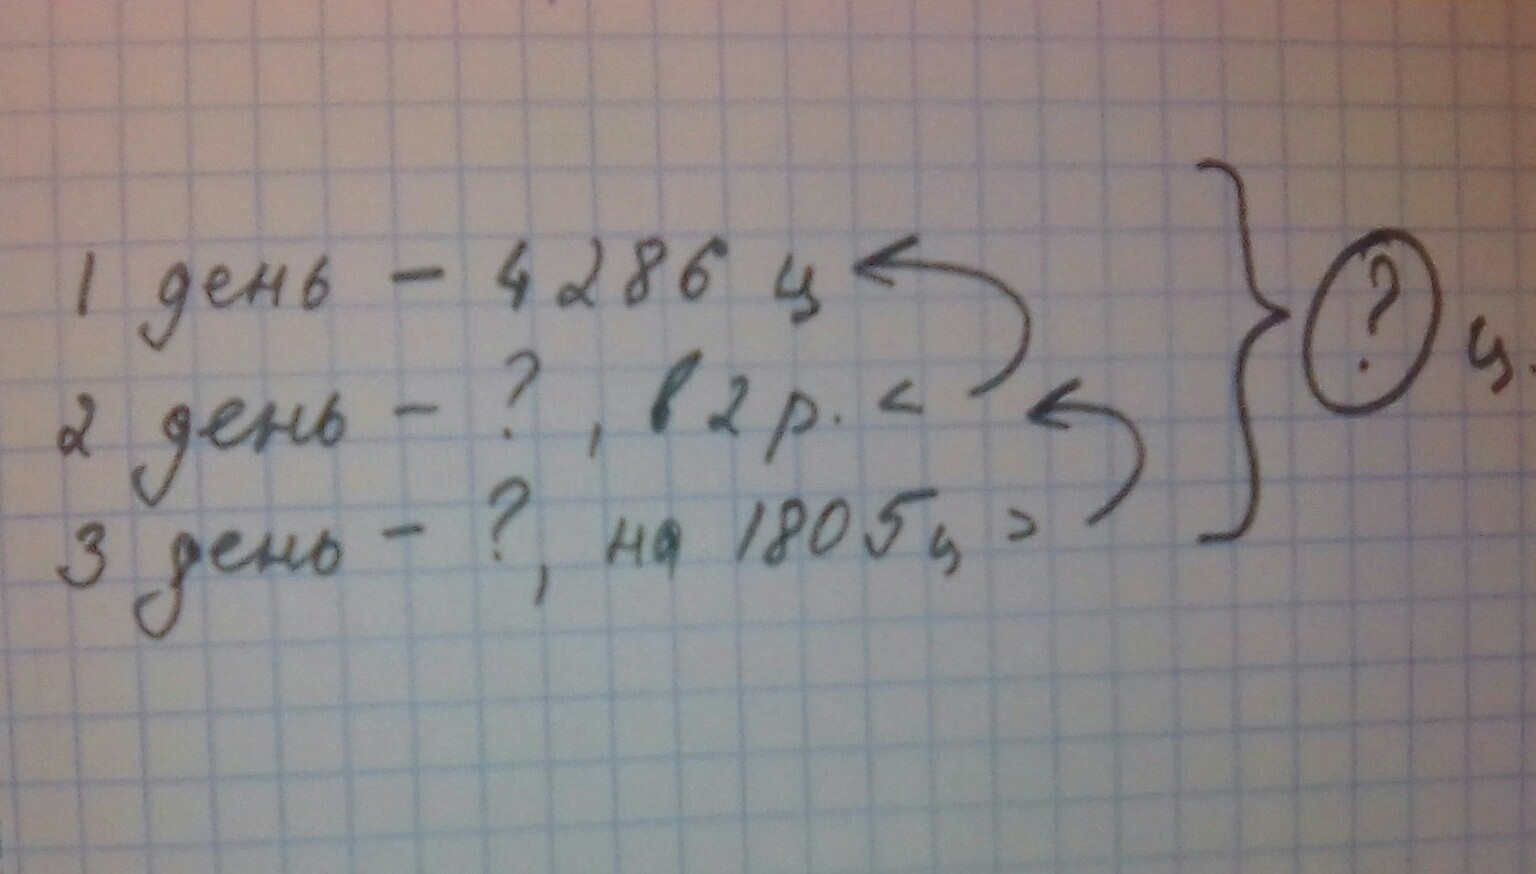 1 день - 4286 ц
2 день - ?, в 2 р. <
3 день - ?, на 1805 ц >
? ц.